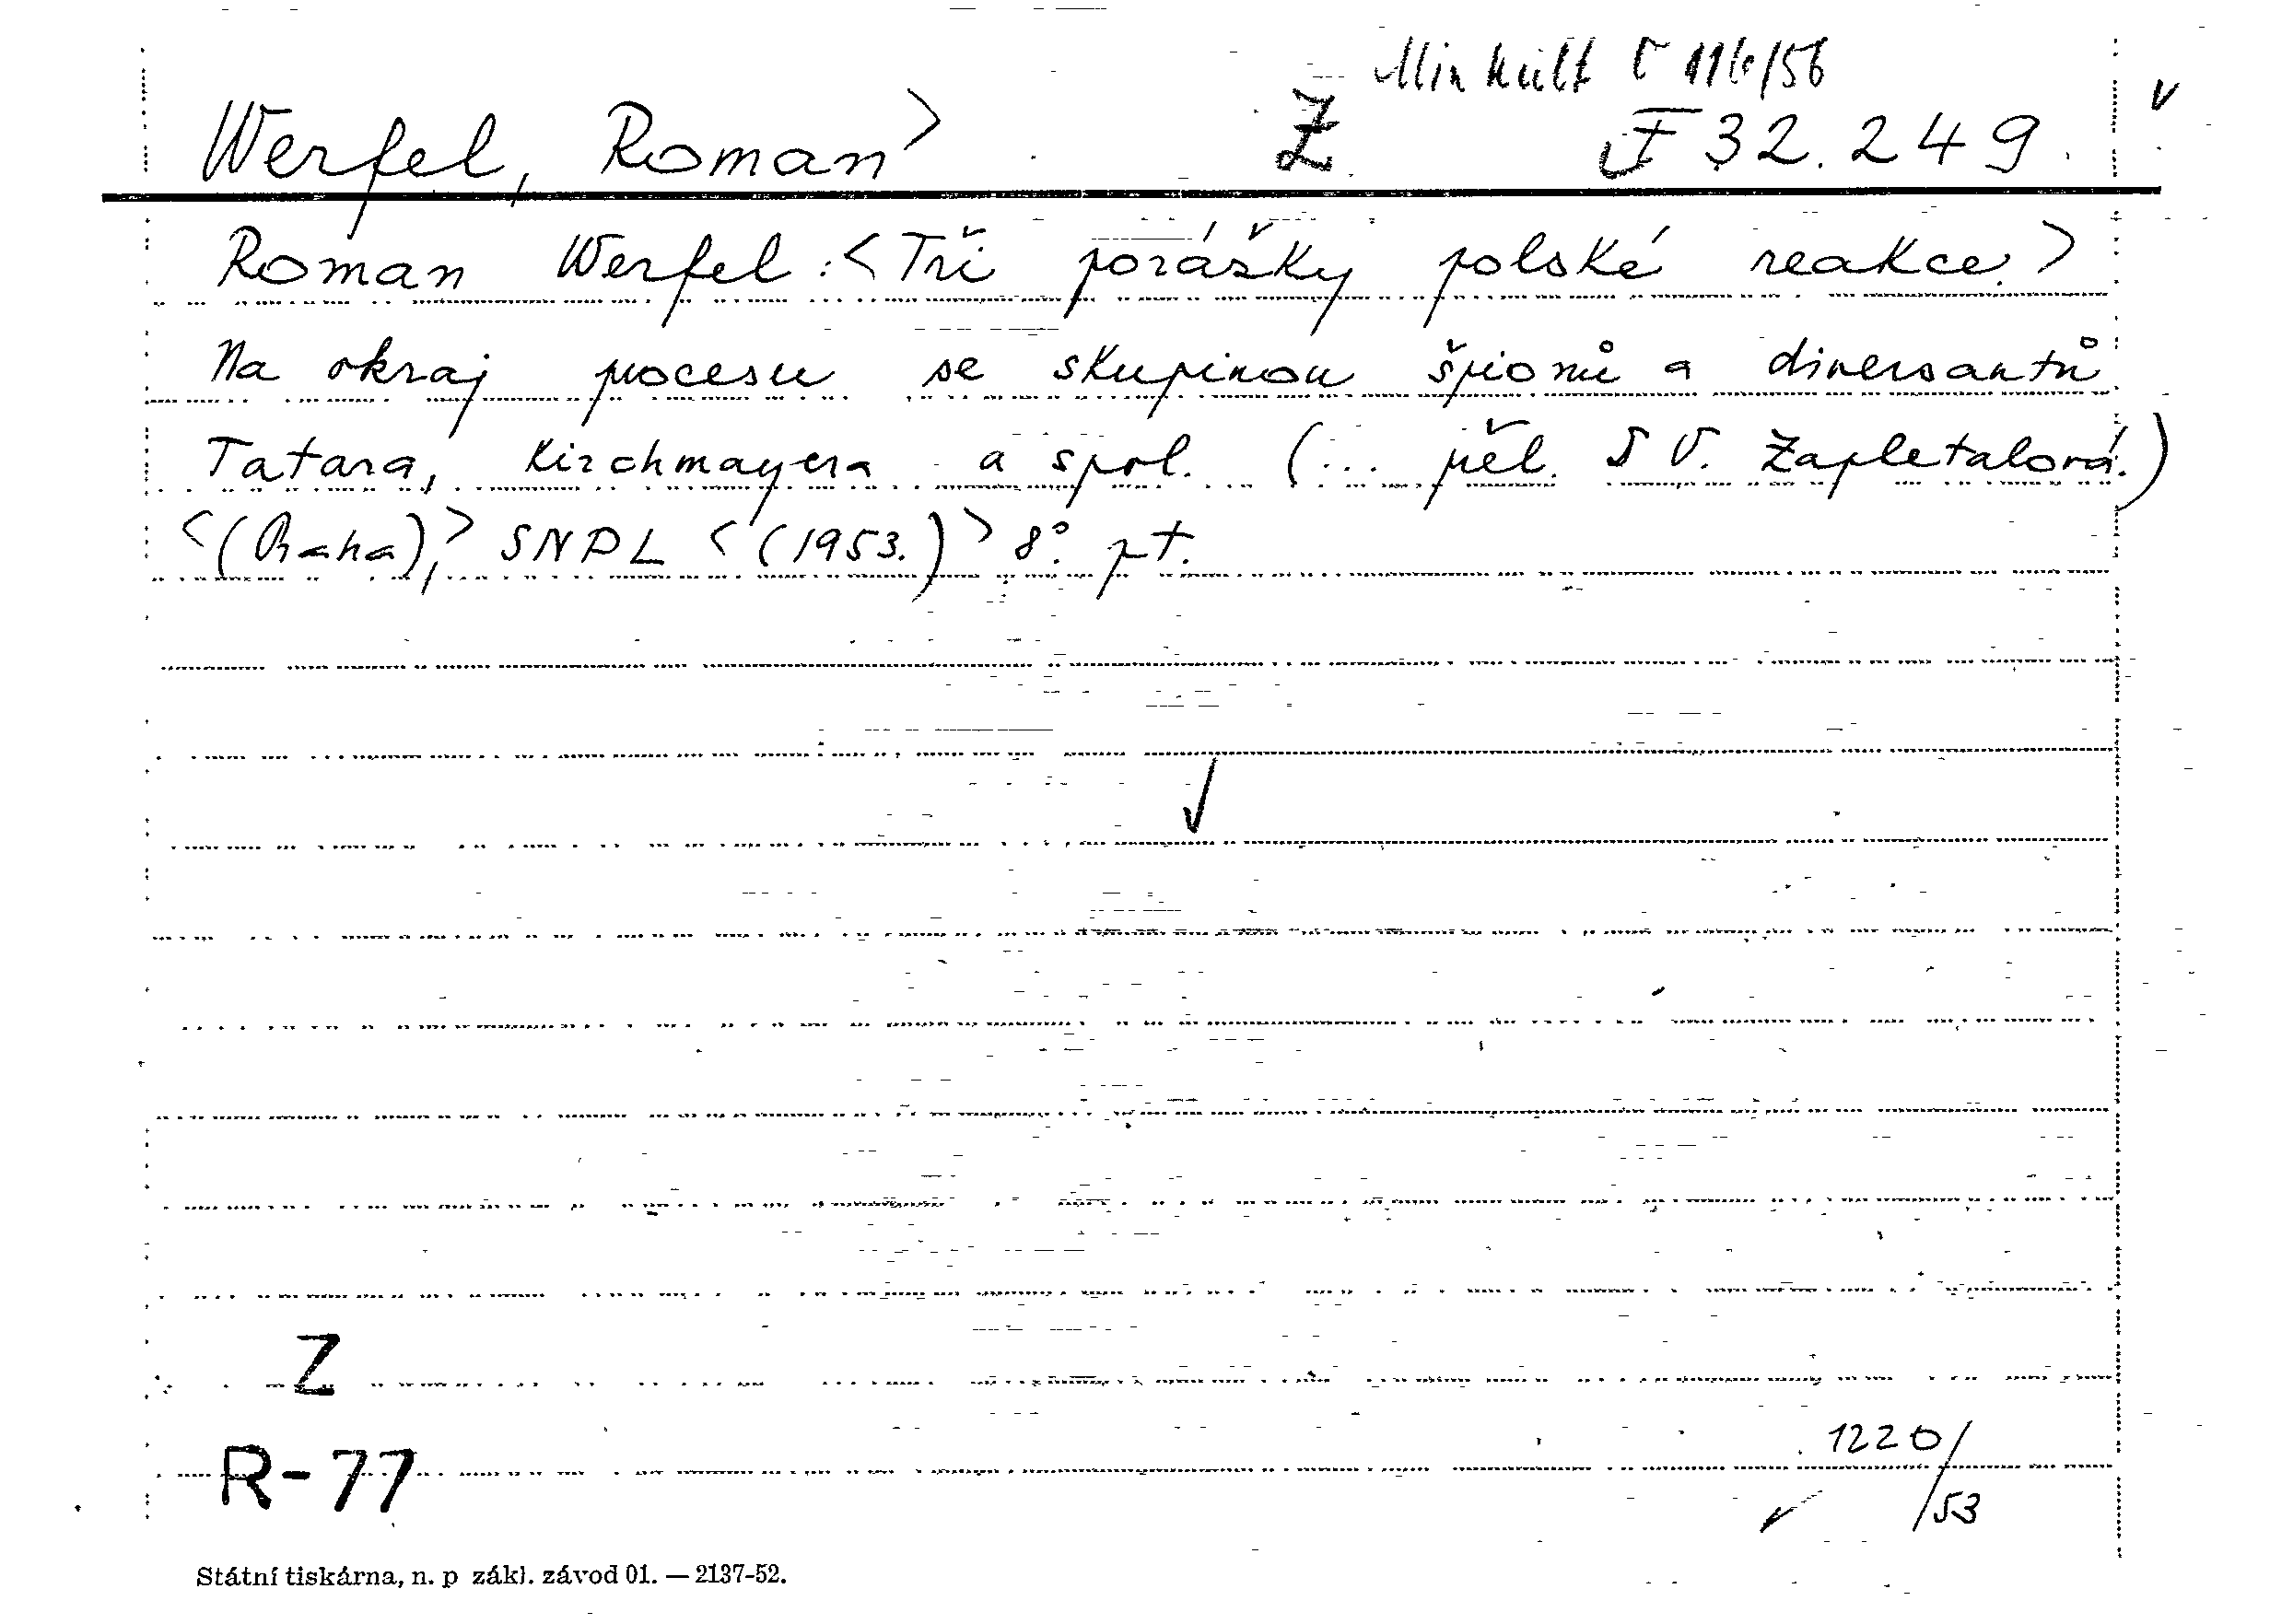 Min kult č 116/56
Werfel, Roman> Z F 32.249.
Roman Werfel: <Tři porážky polské reakce.>
Na okraj procesu se skupinou špionů a diversantů
Tatara, Kirchmayera a spol. (... přel. S V. Zapletalová.)
<(Praha),> SNPL <(1953.)> 8°. pt.
Z
R-77
1220/
/53
Státní tiskárna, n. p zákl. závod 01. — 2137-52.